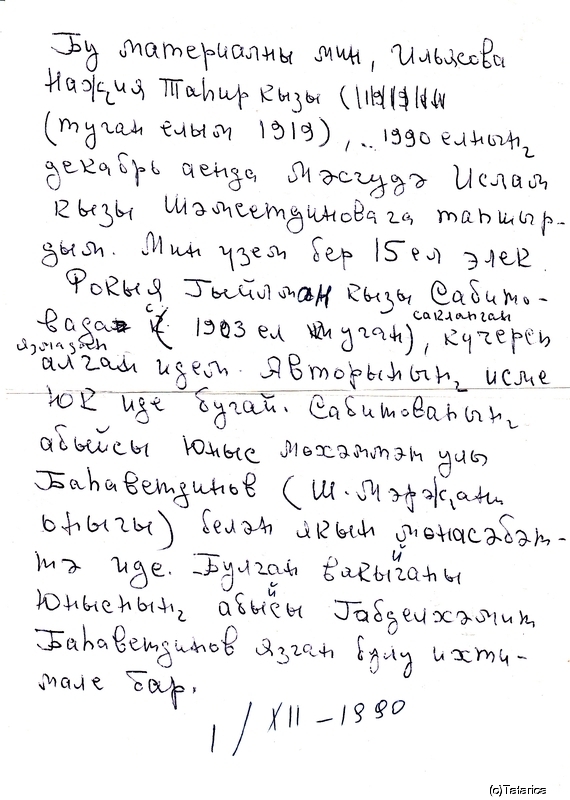 Бу материалны мин, Ильясова
Нәҗия Таһир кызы (
(туган елым 1919), .. 1990 елның
декабрь аенда Мәсгудә Ислам
кызы Шәмсетдиновага тапшыр-
дым. Мин үзем бер 15 ел элек
Рокыя Гыйльман кызы Сабито-
вадан (1903 ел туган), сакланган
язмадан күчереп
алган идем. Авторының исме
юк иде бугай. Сабитованың
абыйсы Юныс Мөхәммәт улы
Баһаветдинов (Ш. Мәрҗани
оныгы) белән якын мөнасәбәт-
тә иде. Булган вакыйганы
Юнысның абыйсы Габделхәмит
Баһаветдинов язган булу ихти-
мале бар.
1/XII-1990
(c)Tatarica